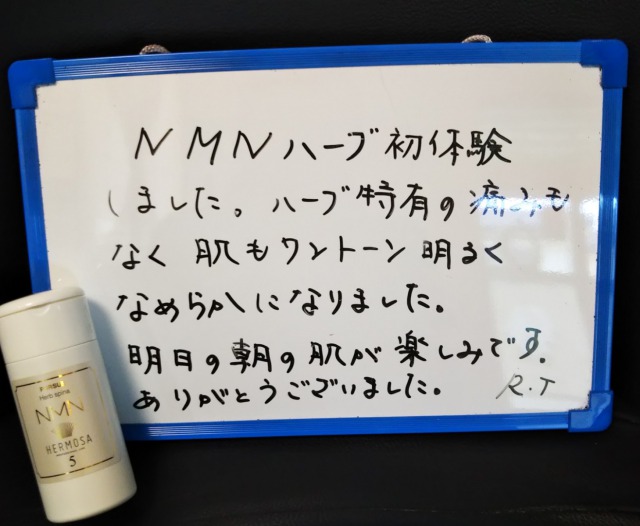 NMNハーブ初体験
しました。ハーブ特有の痛みも
なく 肌もワントーン明るく
なめらかになりました。
明日の朝の肌が楽しみです。
ありがとうございました。 R.T
Herb spina
NMN
HERMOSA
5